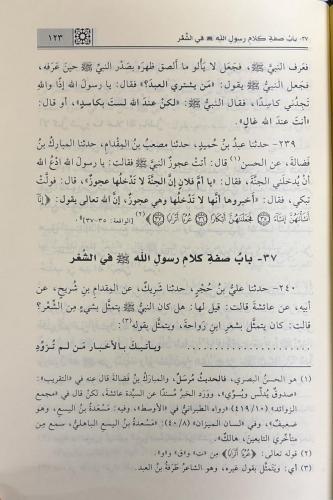 ٣٧- باب صفة كلام رسول الله ﷺ في الشِّعْر
١٢٣
فعرف النبيَّ ﷺ، فجعل لا يَأْلُو ما ألصق ظهرَه بصَدْر النبيِّ ﷺ حينَ عَرَفه،
فجعل النبيُّ ﷺ يقول: «مَن يشتري العبدَ؟» فقال: يا رسولَ الله إذًا والله
تجدُني كاسِدًا، فقال النبيُّ ﷺ: «لكنْ عندَ الله لستَ بكاسِدٍ»، أو قال:
«أنت عندَ الله غالٍ».
٢٣٩- حدثنا عبدُ بنُ حُميدٍ، حدثنا مصعبُ بنُ المِقدامِ، حدثنا المباركُ بنُ
فَضَالة، عن الحسن(١) قال: أتتْ عجوزٌ النبيَّ ﷺ فقالت: يا رسولَ الله ادْعُ اللهَ
أنْ يُدخلَني الجنَّة، فقال: «يا أمَّ فلانٍ إنَّ الجنَّةَ لا تَدْخُلُها عجوزٌ»، قال: فولَّتْ
تبكي، فقال: «أخبروها أنَّها لا تَدْخُلُها وهي عجوزٌ، إنَّ الله تعالى يقول: ﴿إِنَّآ
أَنشَأْنَٰهُنَّ إِنشَآءً ۝ فَجَعَلْنَٰهُنَّ أَبْكَارًا ۝ عُرُبًا أَتْرَابًا﴾(٢) [الواقعة: ٣٥-٣٧]».
٣٧- بابُ صفةِ كلامِ رسولِ الله ﷺ في الشِّعْر
٢٤٠- حدثنا عليُّ بنُ حُجْرٍ، حدثنا شَرِيكٌ، عن المِقدامِ بنِ شُرَيحٍ، عن
أبيه، عن عائشةَ قالت: قيل لها: هل كان النبيُّ ﷺ يتمثَّل بشيءٍ مِن الشِّعْر؟
قالت: كان يتمثَّل بشعرِ ابنِ رَوَاحةَ، ويتمثَّل بقوله(٣):
................ ويأتيكَ بالأخبارِ مَن لم تُزَوِّدِ
(١) هو الحسنُ البصري، فالحديثُ مُرسَلٌ، والمباركُ بنُ فَضَالة قال عنه في «التقريب»:
«صدوقٌ يُدلِّس ويُسوِّي»، وورد الخبرُ مسندًا عن السيِّدة عائشة، قال في «مجمع
الزوائد» (٤١٩/١٠): «رواه الطبرانيُّ في «الأوسط»، وفيه: مَسْعَدةُ بنُ اليسع، وهو
ضعيفٌ»، وفي «لسان الميزان» (٤٠/٨): «مَسْعَدةُ بنُ اليسع الباهليُّ، سمع مِن
متأخِّري التابعينَ، هالكٌ».
(٢) قوله تعالى: ﴿عُرُبًا أَتْرَابًا﴾ مِن «ت» و«ق» و«و».
(٣) أي: ويَتمثَّل بقولِ غيره، وهو الشاعرُ طَرَفةُ بنُ العبد.